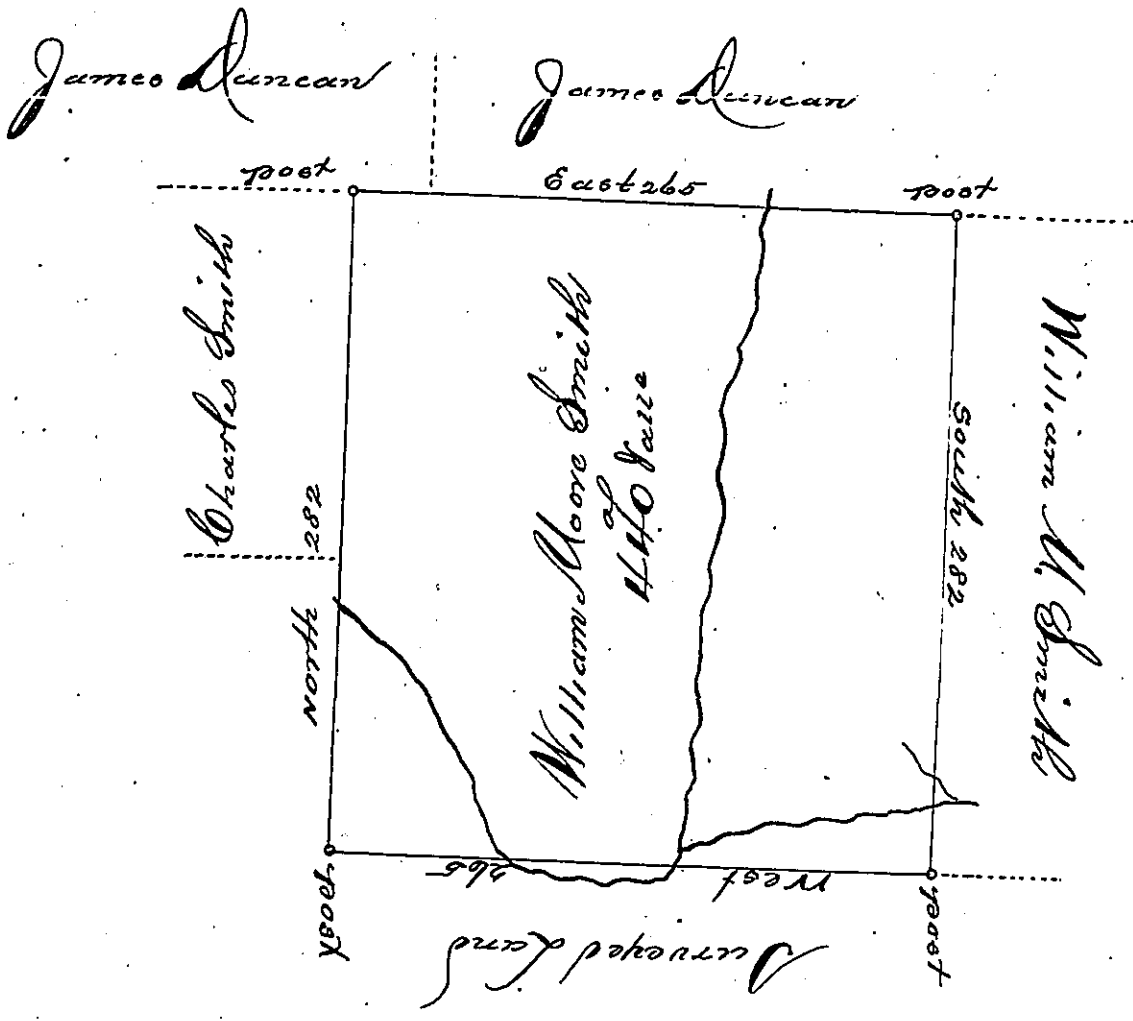 James Duncan
James Duncan
post
East 265
post
Charles Smith
North 282
William Moore Smith
440
South 282
William M. Smith
West 265
post
post
Surveyed Land